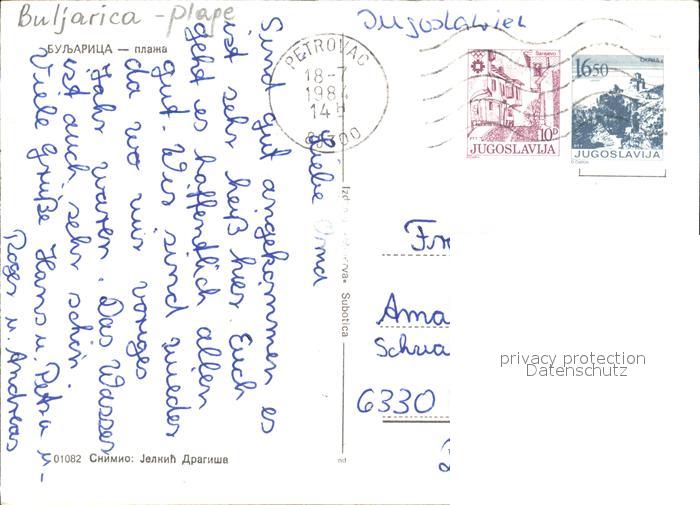 Buljarica - plage
Jugoslawien
БУЉАРИЦА — плажа
PETROVAC
18-7
1984
14H
Sarajevo
10P
JUGOSLAVIJA
16.50
JUGOSLAVIJA
Liebe Oma
Sind gut angekommen es
ist sehr heiß hier. Euch
geht es hoffendlich allen
gut. Wir sind wieder
da wo wir voriges
Jahr waren. Das Wasser
ist auch sehr schön.
Viele Grüße Hans u. Petra u.
Roger u. Andreas
Subotica
Ama
6330
privacy protection
Datenschutz
01082 Снимио: Јелкић Драгиша